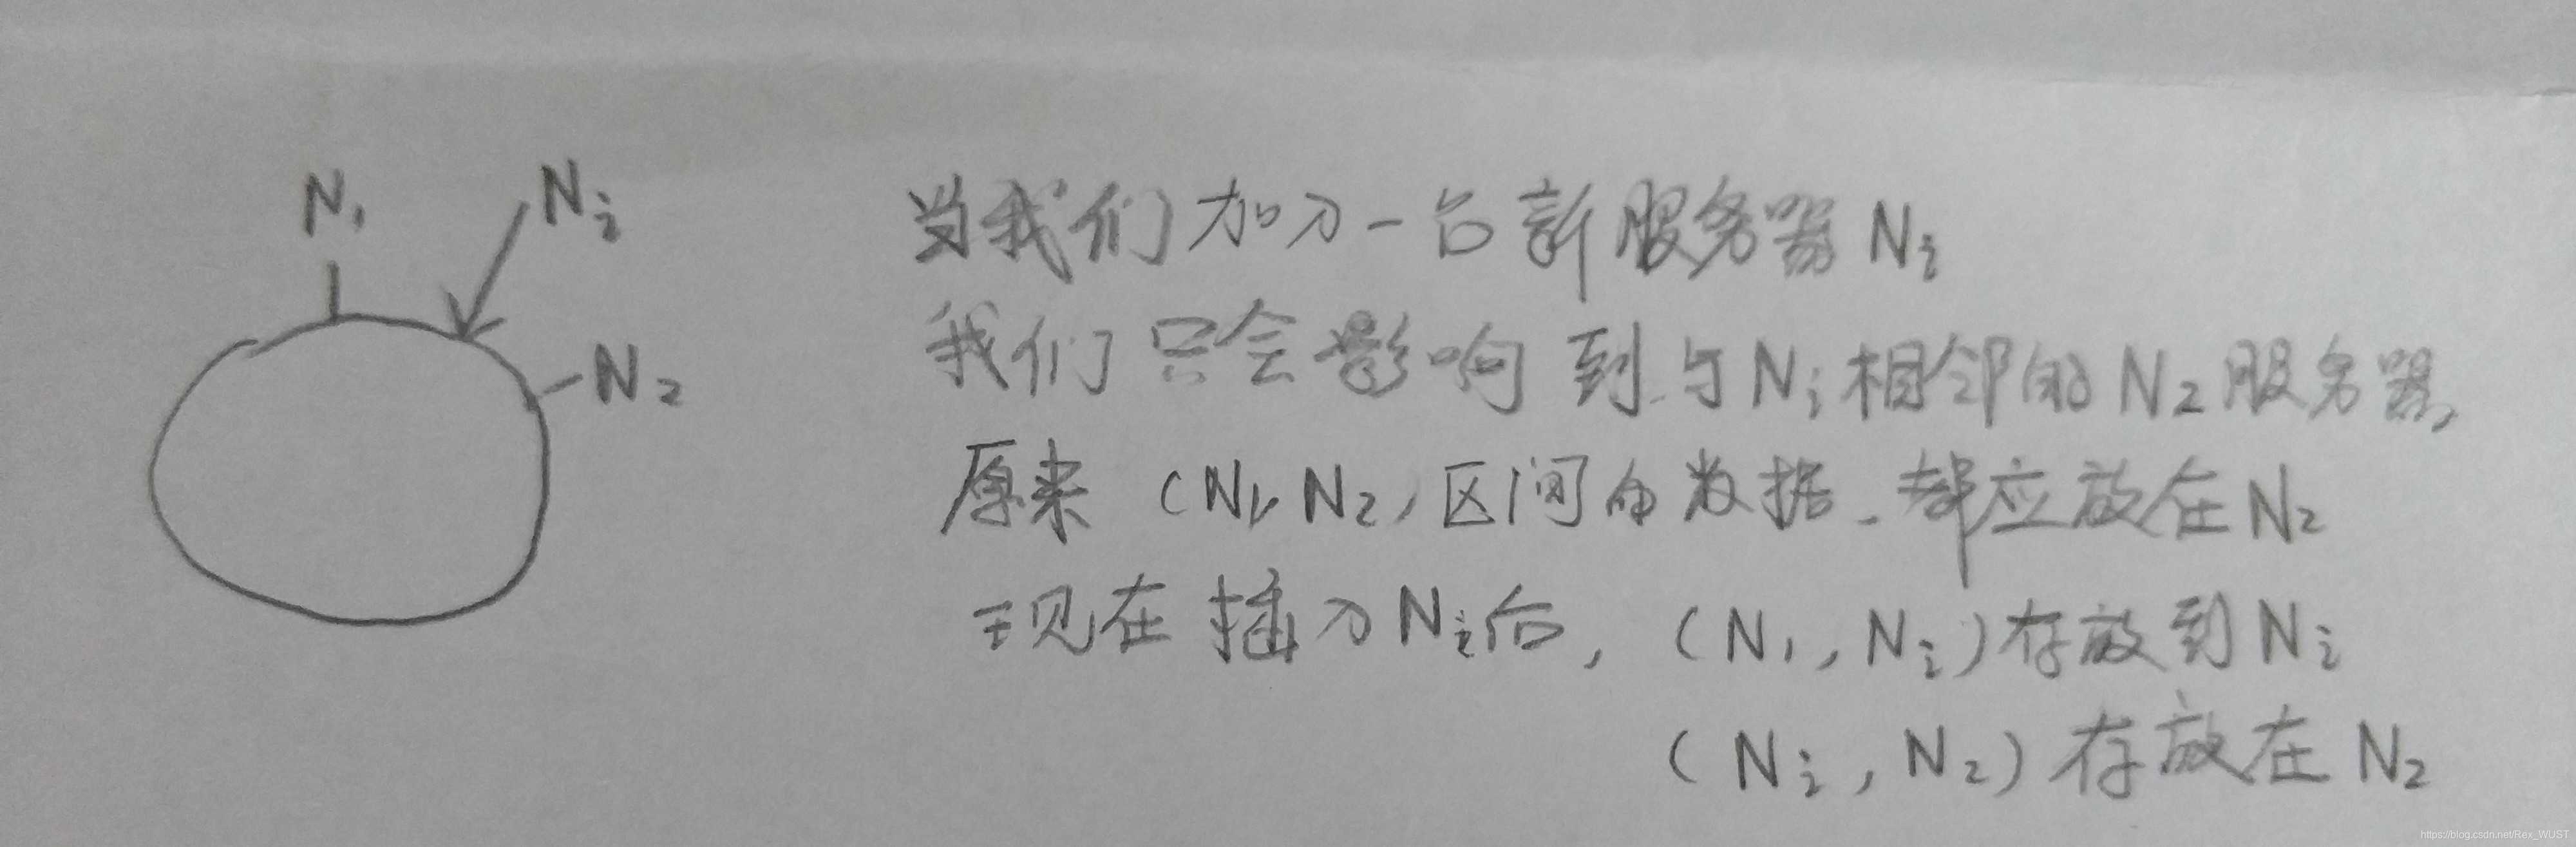 N1
Ni
N2
当我们加入一台新服务器 Ni
我们只会影响到与Ni相邻的N2服务器,
原来 (N1, N2) 区间的数据.都应放在N2
现在插入Ni后, (N1, Ni)存放到Ni
(Ni, N2)存放在 N2
https://blog.csdn.net/Rex_WUST